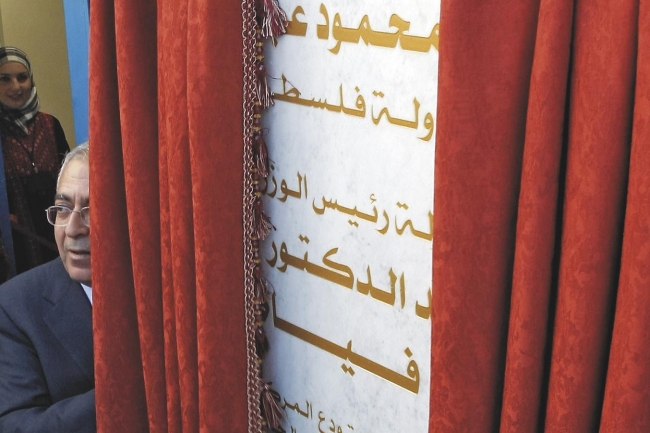 محمود عـ
ولة فلسطـ
لة رئيس الوز
د الدكتور
فيا
تودع المر